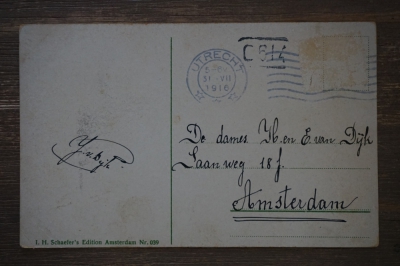 UTRECHT
31 VII
1916
C614
De dames H. en E. van Dijk
Laanweg 18 f.
Amsterdam
J. H. Schaefer's Edition Amsterdam Nr. 659